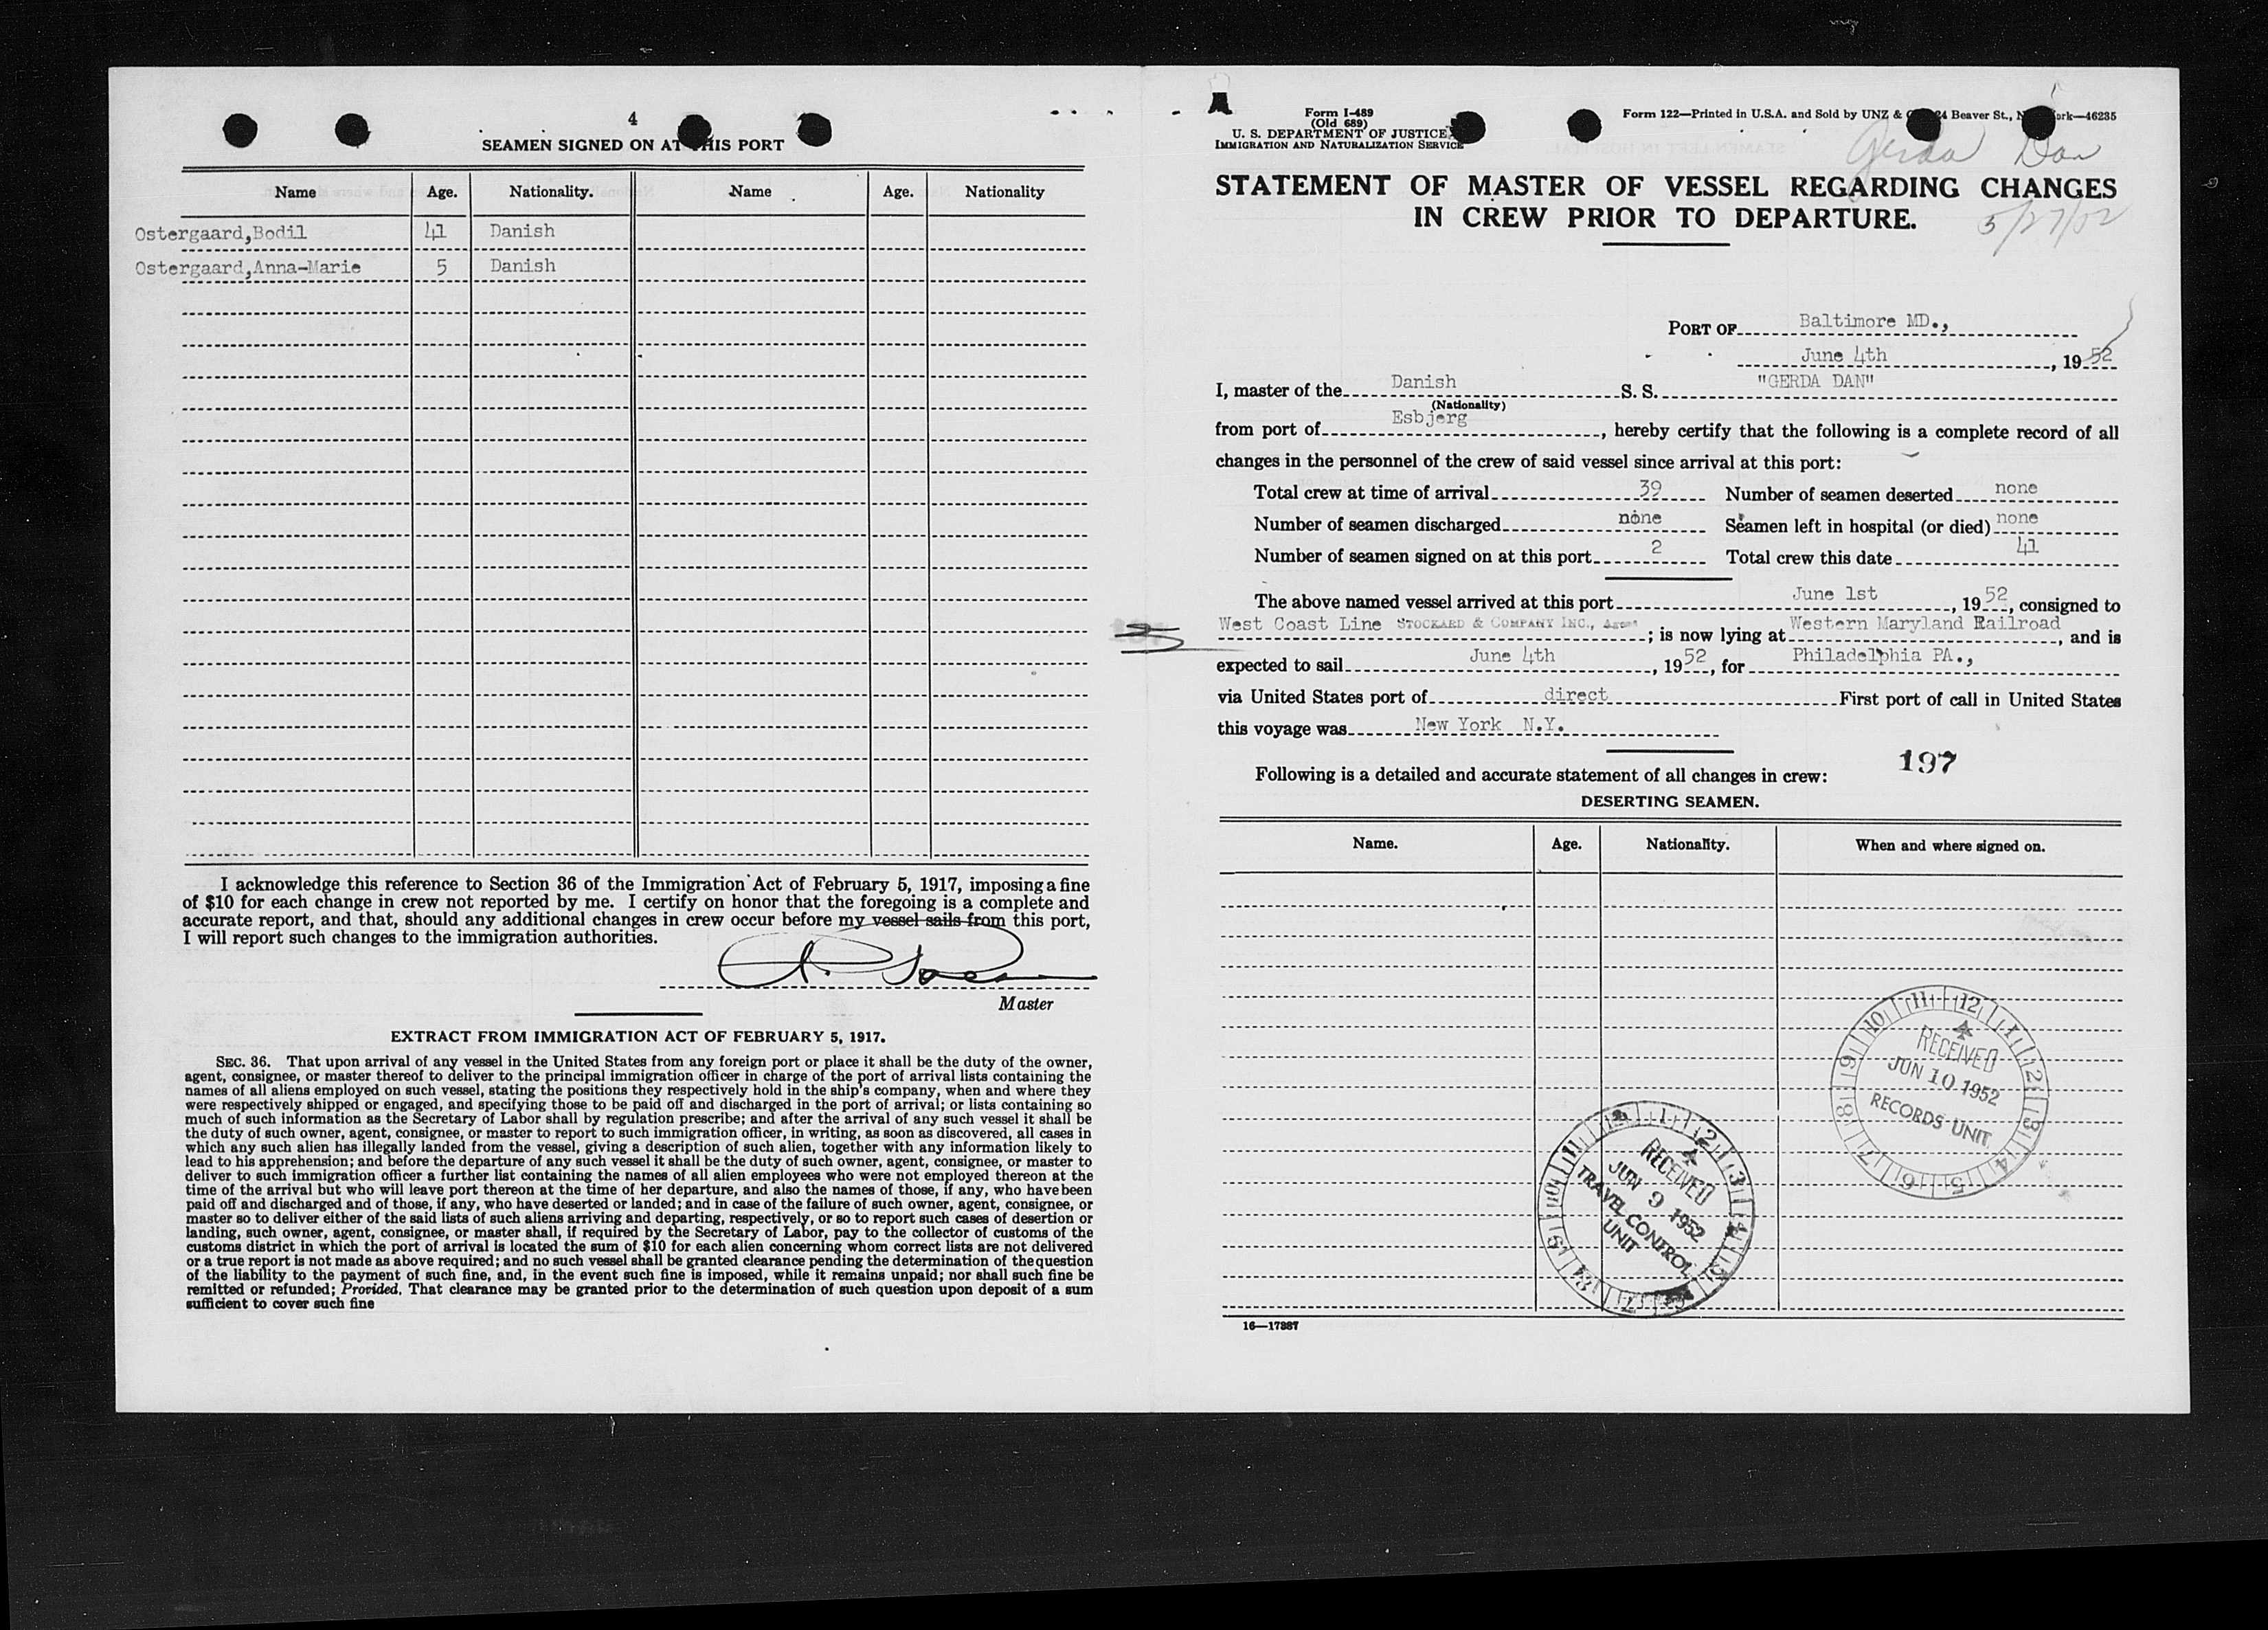 4
SEAMEN SIGNED ON AT THIS PORT
Name Age. Nationality. Name Age. Nationality
Ostergaard,Bodil 41 Danish
Ostergaard,Anna-Marie 5 Danish
I acknowledge this reference to Section 36 of the Immigration Act of February 5, 1917, imposing a fine
of $10 for each change in crew not reported by me. I certify on honor that the foregoing is a complete and
accurate report, and that, should any additional changes in crew occur before my vessel sails from this port,
I will report such changes to the immigration authorities.
Master
EXTRACT FROM IMMIGRATION ACT OF FEBRUARY 5, 1917.
SEC. 36. That upon arrival of any vessel in the United States from any foreign port or place it shall be the duty of the owner,
agent, consignee, or master thereof to deliver to the principal immigration officer in charge of the port of arrival lists containing the
names of all aliens employed on such vessel, stating the positions they respectively hold in the ship's company, when and where they
were respectively shipped or engaged, and specifying those to be paid off and discharged in the port of arrival; or lists containing so
much of such information as the Secretary of Labor shall by regulation prescribe; and after the arrival of any such vessel it shall be
the duty of such owner, agent, consignee, or master to report to such immigration officer, in writing, as soon as discovered, all cases in
which any such alien has illegally landed from the vessel, giving a description of such alien, together with any information likely to
lead to his apprehension; and before the departure of any such vessel it shall be the duty of such owner, agent, consignee, or master to
deliver to such immigration officer a further list containing the names of all alien employees who were not employed thereon at the
time of the arrival but who will leave port thereon at the time of her departure, and also the names of those, if any, who have been
paid off and discharged and of those, if any, who have deserted or landed; and in case of the failure of such owner, agent, consignee, or
master so to deliver either of the said lists of such aliens arriving and departing, respectively, or so to report such cases of desertion or
landing, such owner, agent, consignee, or master shall, if required by the Secretary of Labor, pay to the collector of customs of the
customs district in which the port of arrival is located the sum of $10 for each alien concerning whom correct lists are not delivered
or a true report is not made as above required; and no such vessel shall be granted clearance pending the determination of the question
of the liability to the payment of such fine, and, in the event such fine is imposed, while it remains unpaid; nor shall such fine be
remitted or refunded; Provided, That clearance may be granted prior to the determination of such question upon deposit of a sum
sufficient to cover such fine
Form I-489
(Old 689)
U. S. DEPARTMENT OF JUSTICE
IMMIGRATION AND NATURALIZATION SERVICE
Form 122—Printed in U.S.A. and Sold by UNZ & Beaver St., 46235
Gerda Dan
STATEMENT OF MASTER OF VESSEL REGARDING CHANGES
IN CREW PRIOR TO DEPARTURE.
5/27/52
PORT OF Baltimore MD.,
June 4th, 19 52
I, master of the Danish S. S. "GERDA DAN"
(Nationality)
from port of Esbjerg, hereby certify that the following is a complete record of all
changes in the personnel of the crew of said vessel since arrival at this port:
Total crew at time of arrival 39 Number of seamen deserted none
Number of seamen discharged none Seamen left in hospital (or died) none
Number of seamen signed on at this port 2 Total crew this date 41
The above named vessel arrived at this port June 1st, 19 52, consigned to
West Coast Line STOCKARD & COMPANY INC., Agent; is now lying at Western Maryland Railroad, and is
expected to sail June 4th, 19 52, for Philadelphia PA.,
via United States port of direct First port of call in United States
this voyage was New York N.Y.
197
Following is a detailed and accurate statement of all changes in crew:
DESERTING SEAMEN.
Name. Age. Nationality. When and where signed on.
RECEIVED
JUN 10 1952
RECORDS UNIT
RECEIVED
JUN 9 1952
TRAVEL CONTROL
UNIT
16—17887